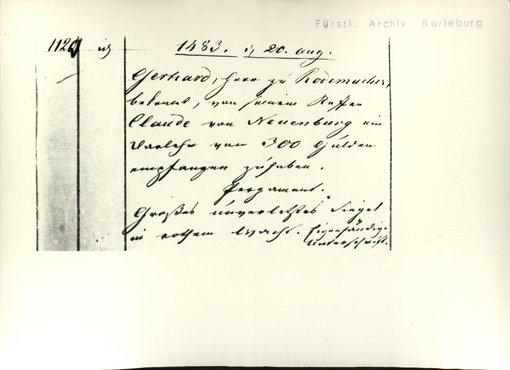 Fürstl. Archiv Berleburg
1483. 20. aug.
Gerhard, Herr zu Rodemachern,
bekennt, von seinem Neffen
Claude von Neuenburg ein
Darlehn von 300 Gulden
empfangen zu haben.
Pergament.
Großes unverletztes Siegel
in rothem Wachs. Eigenhändige
Unterschrift.